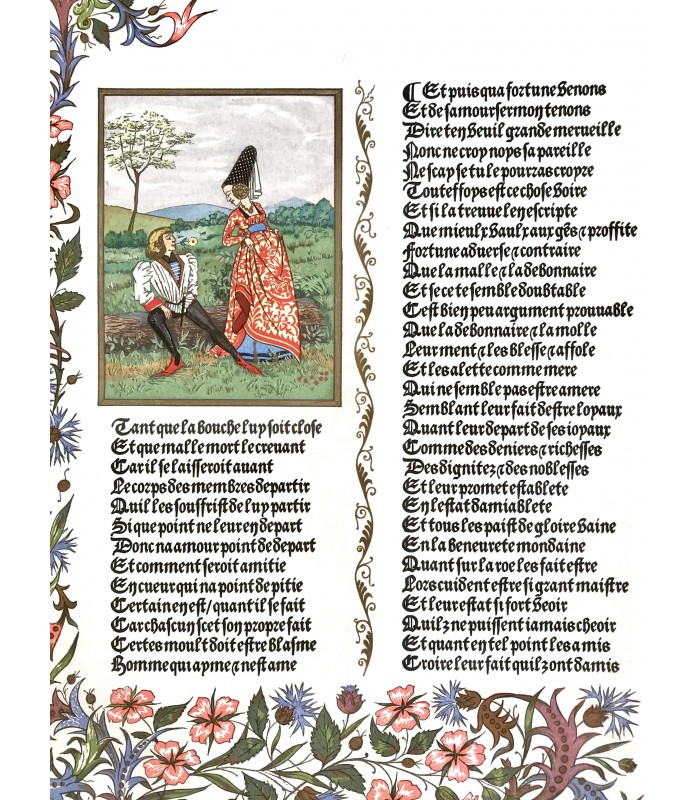 Tant que la bouche luy soit close
Et que malle mort le creuant
Car il se laisseroit auant
Le corps des membres departir
Quil les souffrist de luy partir
Si que point ne leur en depart
Donc na amour point de depart
Et comment seroit amitie
En cueur qui na point de pitie
Certain en est / quant il se fait
Car chascun scet son propre fait
Certes moult doit estre blasme
Homme qui ayme ⁊ nest ame
¶ Et puis qua fortune venons
Et de sa mour sermon tenons
Dire ten vueil grande merueille
Nonc ne croy noys sa pareille
Ne scay se tu le pourras croyre
Touteffoys est ce chose voire
Et si la treuue len escripte
Que mieulx vault aux gēs ⁊ proffite
Fortune aduerse ⁊ contraire
Que la malle ⁊ la debonnaire
Et se ce te semble doubtable
Cest bien peu argument prouuable
Que la debonnaire ⁊ la molle
Leur ment ⁊ les blesse ⁊ affole
Et les alette comme mere
Qui ne semble pas estre amere
Semblant leur fait destre loyaux
Quant leur depart de ses ioyaux
Comme des deniers ⁊ richesses
Des dignitez ⁊ des noblesses
Et leur promet establete
En lestat damiablete
Et tous les paist de gloire vaine
En la beneurete mondaine
Quant sur la roe les fait estre
Lors cuident estre si grant maistre
Et leur estat si fort veoir
Quilz ne puissent iamais cheoir
Et quant en tel point les a mis
Croire leur fait quilz ont damis